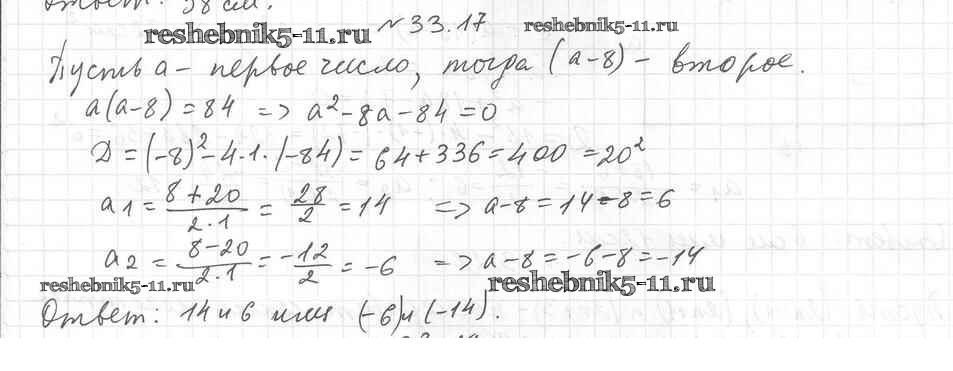 Ответ: 38 см.
reshebnik5-11.ru № 33.17 reshebnik5-11.ru
Пусть a - первое число, тогда (a-8) - второе.
a(a-8)=84 => a²-8a-84=0
D=(-8)²-4·1·(-84)=64+336=400=20²
a1=(8+20)/(2·1)=28/2=14 => a-8=14-8=6
a2=(8-20)/(2·1)=-12/2=-6 => a-8=-6-8=-14
reshebnik5-11.ru reshebnik5-11.ru
Ответ: 14 и 6 или (-6) и (-14).